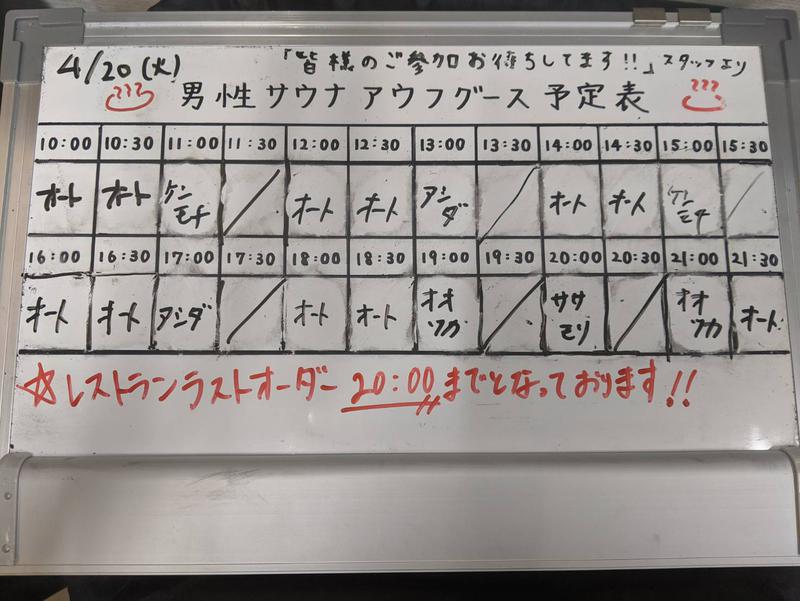 4/20(火) 「皆様のご参加お待ちしてます!!」スタッフより
男性サウナ アウフグース 予定表
10:00 10:30 11:00 11:30 12:00 12:30 13:00 13:30 14:00 14:30 15:00 15:30
オート オート ケンモチ ／ オート オート アシダ ／ オート オート ケンモチ ／
16:00 16:30 17:00 17:30 18:00 18:30 19:00 19:30 20:00 20:30 21:00 21:30
オート オート アシダ ／ オート オート オオツカ ／ ササモリ ／ オオツカ オート
☆レストランラストオーダー20:00までとなっております!!